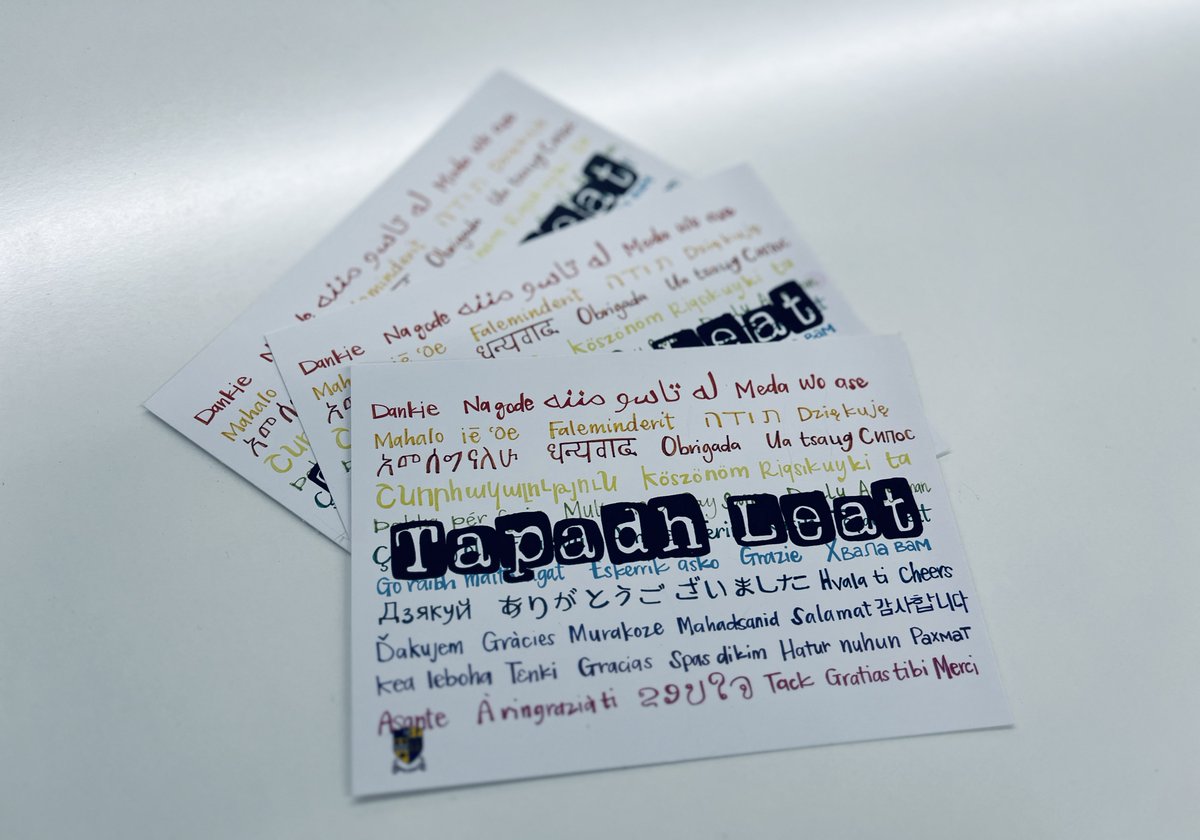 Dankje Nagode له تاسو مننه Meda wo ase
Mahalo iē ʻOe Faleminderit תודה Dziękuję
አመሰግናለሁ धन्यवाद Obrigada Ua tsaug Сипос
Շնորհակալություն Köszönöm Riqsikuyki ta
Tapadh Leat
Go raibh maith agat Eskerrik asko Grazie Хвала вам
Дзякуй ありがとうございました Hvala ti Cheers
Ďakujem Gràcies Murakoze Mahadsanid Salamat 감사합니다
kea leboha Tenki Gracias Spas dikim Hatur nuhun Рахмат
Asante À ringraziàti ຂອບໃຈ Tack Gratias tibi Merci